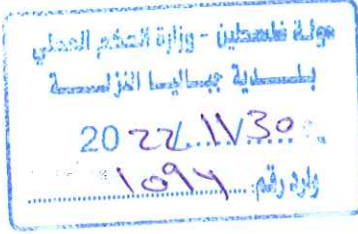 دولة فلسطين - وزارة الحكم المحلي
بلدية جباليا النزلة
2022/11/30
وارد رقم: ١٥٩٧